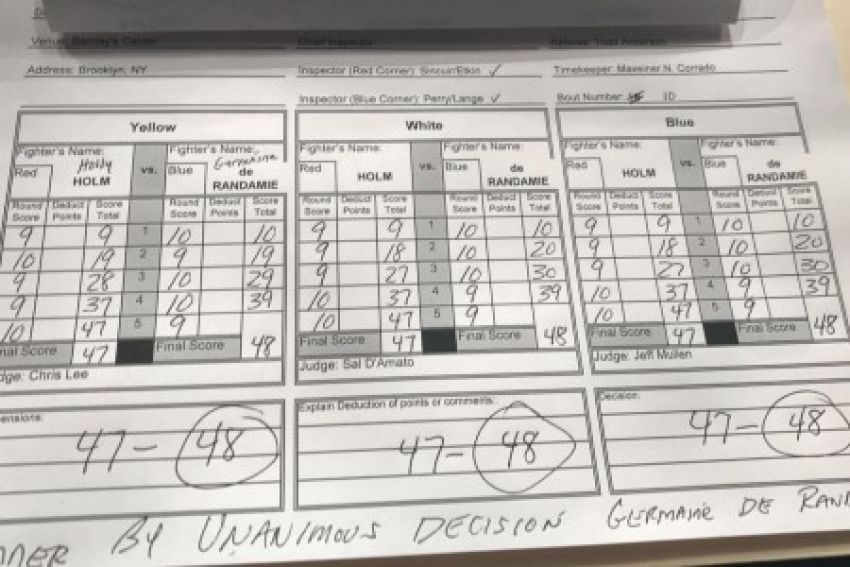 Venue: Barclay's Center Chief Inspector: Referee: Todd Anderson
Address: Brooklyn, NY Inspector (Red Corner): Timekeeper:
Inspector (Blue Corner): Perry/Lange ✓ Bout Number 10
Yellow White Blue
Fighter's Name: Fighter's Name: Fighter's Name: Fighter's Name: Fighter's Name: Fighter's Name:
Red Holly HOLM vs. Blue Germaine de RANDAMIE Red HOLM vs. Blue de RANDAMIE Red HOLM vs. Blue de RANDAMIE
Round Score Deduct Points Score Total Round Score Deduct Points Score Total Round Score Deduct Points Score Total Round Score Deduct Points Score Total Round Score Deduct Points Score Total Round Score Deduct Points Score Total
9 9 1 10 10 9 9 1 10 10 9 9 1 10 10
10 19 2 9 19 9 18 2 10 20 9 18 2 10 20
9 28 3 10 29 9 27 3 10 30 9 27 3 10 30
9 37 4 10 39 10 37 4 9 39 10 37 4 9 39
10 47 5 9 48 10 47 5 9 48 10 47 5 9 48
nal Score 47 Final Score Final Score 47 Final Score Final Score 47 Final Score
dge: Chris Lee Judge: Sal D'Amato Judge: Jeff Mullen
ensions: Explain Deduction of points or comments: Decision:
47-48 47-48 47-48
NNER BY UNANIMOUS DECISION GERMAINE DE RAND